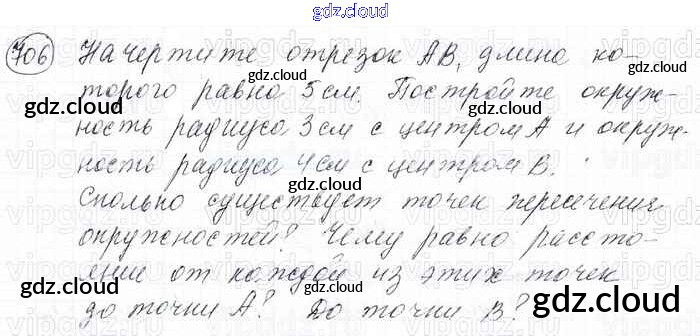 gdz.cloud
706 Начертите отрезок АВ, длина ко-
gdz.cloud
gdz.cloud
торого равна 5 см. Постройте окруж-
gdz.cloud
ность радиуса 3 см с центром А и окруж-
ность радиуса 4 см с центром В.
gdz.cloud
Сколько существует точек пересечения
gdz.cloud
окружностей? Чему равно расстоя-
gdz.cloud
ние от каждой из этих точек
gdz.cloud
до точки А? До точки В?
gdz.cloud
gdz.cloud